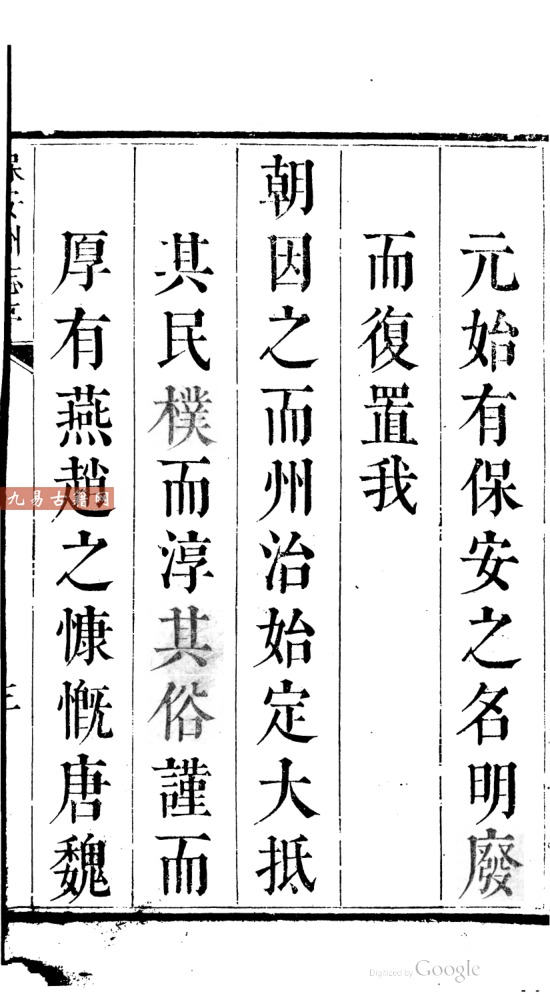 元始有保安之名明廢
而復置我
朝因之而州治始定大抵
其民樸而淳其俗謹而
厚有燕趙之慷慨唐魏
保安州志序
三
九易古籍网
Digitized by Google